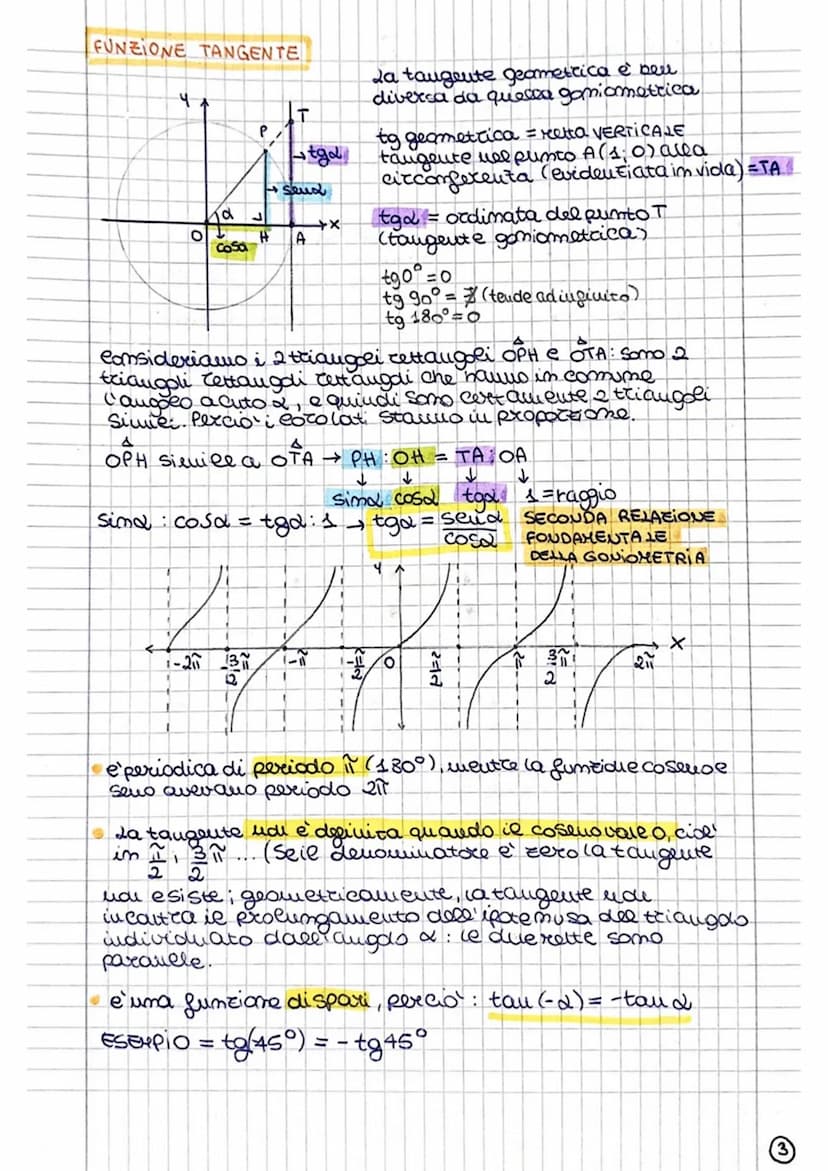 FUNZIONE TANGENTE
La tangente geometrica è ben
diversa da quella goniometrica
tg geometrica = retta VERTICALE
tangente nel punto A(1;0) alla
circonferenza (evidenziata in viola) = TA
tgα = ordinata del punto T
(tangente goniometrica)
tg0° = 0
tg 90° = ∄ (tende ad infinito)
tg 180° = 0
y
T
P
→ tgα
→ senα
α
x
O
H
A
cosα
Consideriamo i 2 triangoli rettangoli OPH e OTA: sono 2
triangoli rettangoli rettangoli che hanno in comune
l'angolo acuto α, e quindi sono certamente 2 triangoli
simili. Perciò i loro lati stanno in proporzione.
OPH simile a OTA → PH : OH = TA : OA
↓ ↓ ↓ ↓
sinα cosα tgα 1 = raggio
sinα : cosα = tgα : 1 → tgα = senα/cosα
SECONDA RELAZIONE
FONDAMENTALE
DELLA GONIOMETRIA
y
x
-2π -3/2π -π -π/2 0 π/2 π 3π/2 2π
• è periodica di periodo π (180°), mentre la funzione coseno e
seno avevano periodo 2π
• La tangente non è definita quando il coseno vale 0, cioè
in π/2, 3/2 π ... (se il denominatore è zero la tangente
non esiste; geometricamente, la tangente non
incontra il prolungamento dell'ipotenusa del triangolo
individuato dall'angolo α: le due rette sono
parallele.
• è una funzione dispari, perciò: tan(-α) = -tanα
ESEMPIO = tg(45°) = - tg45°
3